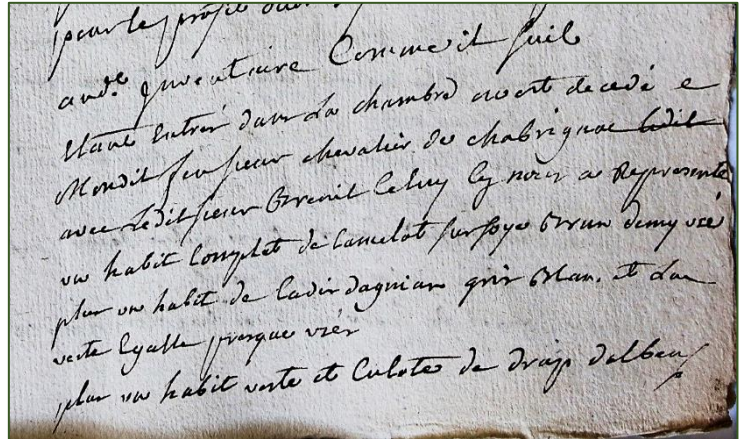 pour le
audt Inventaire Comme il suit
Etant Entrés dans La chambre ou est decedé
Mondit feu sieur chevalier de chabrignac ledit
avec Ledit sieur Breuil Celuy Cy nous a Representé
un habit Complet de Camelot sur soye Brun demy usé
plus un habit de Cadis dagnian gris Blan. et La
veste Egalle presque usés
plus un habit veste et Culote de drap